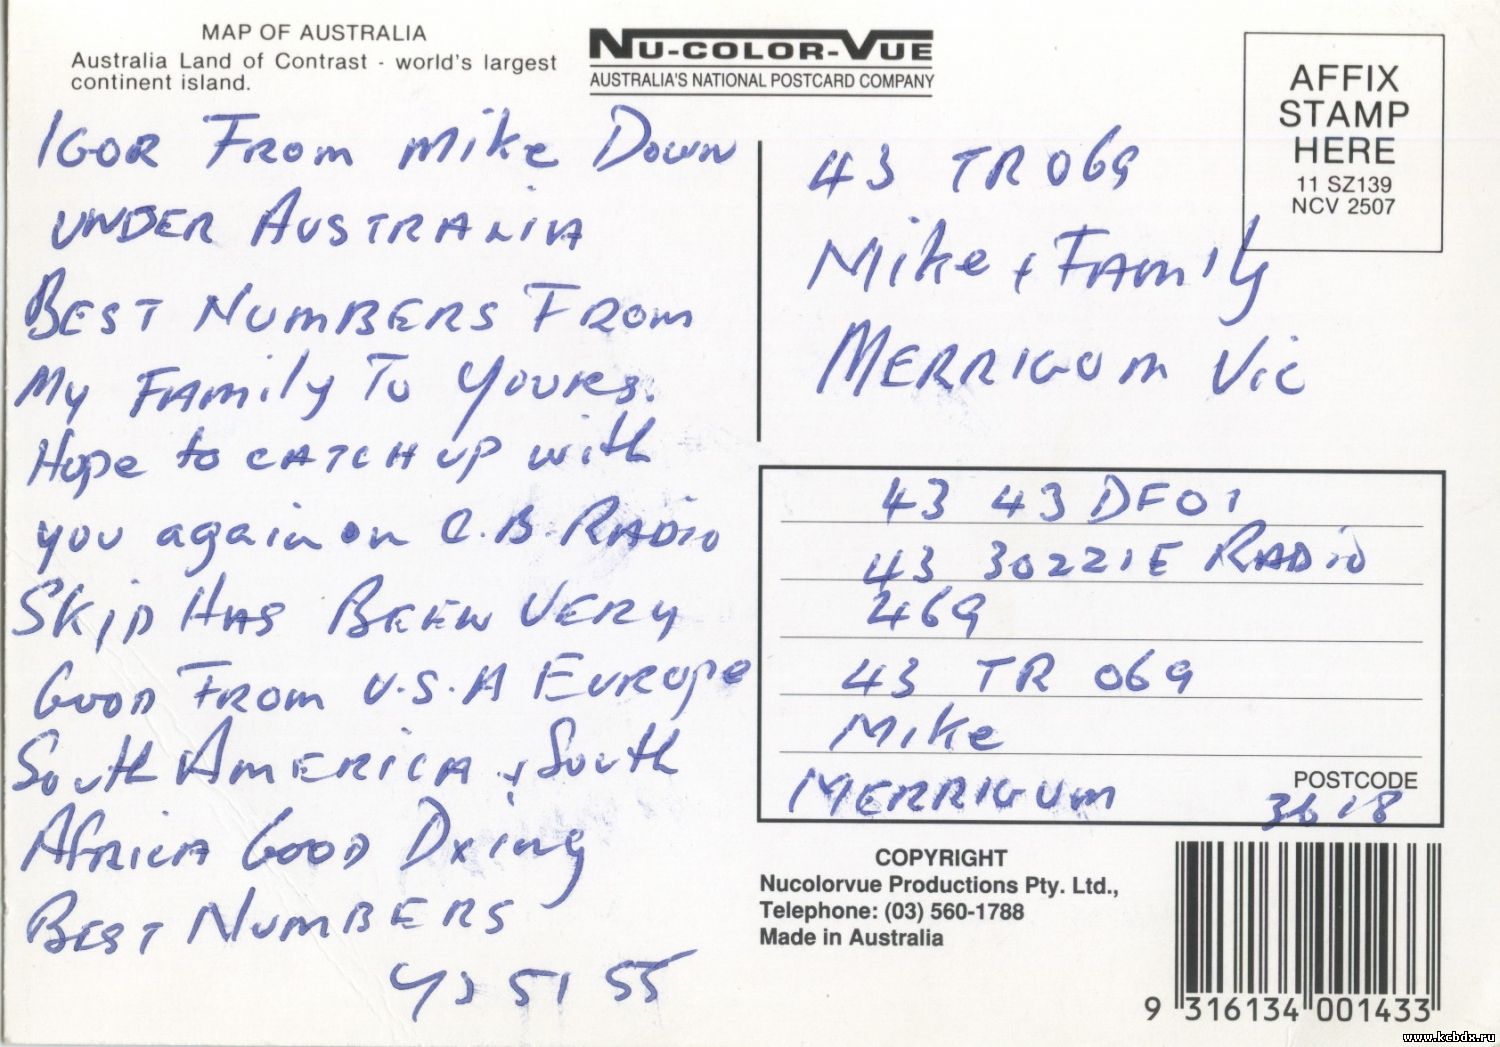 MAP OF AUSTRALIA
Australia Land of Contrast - world's largest
continent island.
NU-COLOR-VUE
AUSTRALIA'S NATIONAL POSTCARD COMPANY
AFFIX
STAMP
HERE
11 SZ139
NCV 2507
IGOR FROM MIKE DOWN
UNDER AUSTRALIA
BEST NUMBERS FROM
MY FAMILY TO YOURS.
Hope to CATCH UP with
you again on C.B. RADIO
SKIP HAS BEEN VERY
GOOD FROM U.S.A EUROPE
South AMERICA + South
AFRICA GOOD DXing
BEST NUMBERS
73 51 55
43 TR 069
Mike + FAMily
MERRIGUM Vic
43 43 DF01
43 30ZZIE RADIO
469
43 TR 069
Mike
MERRIGUM
POSTCODE
3618
COPYRIGHT
Nucolorvue Productions Pty. Ltd.,
Telephone: (03) 560-1788
Made in Australia
9 316134 001433
www.kcbdx.ru